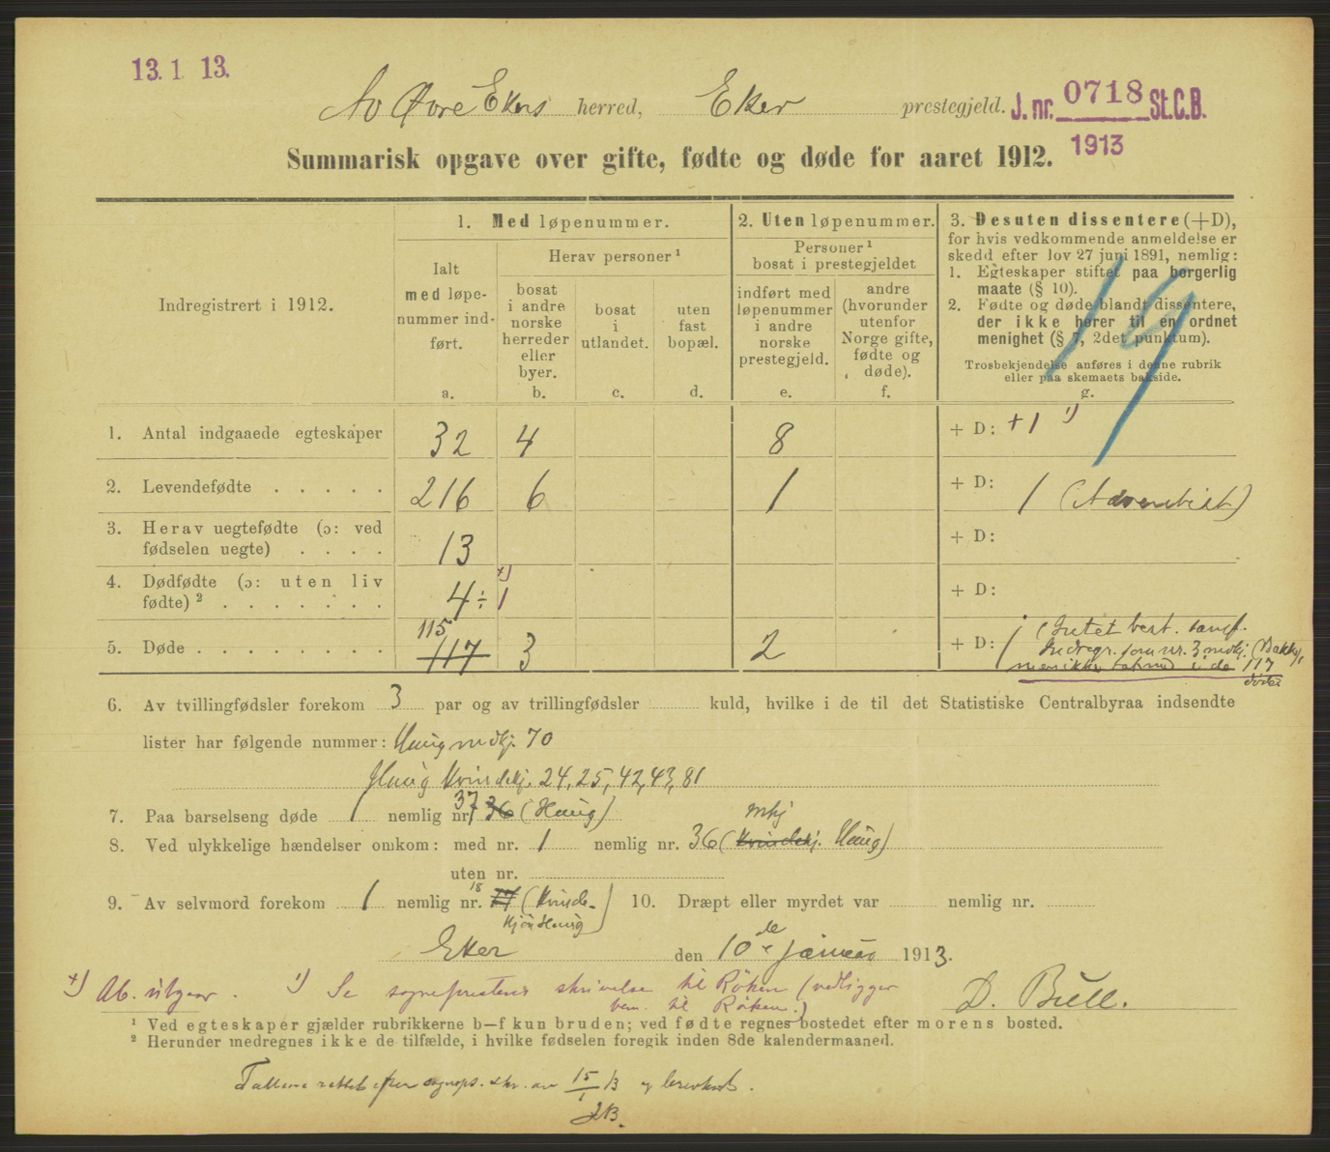 13. 1 13.
Av Øvre Ekers herred, Eker prestegjeld. J. nr. 0718 St.C.B.
1913
Summarisk opgave over gifte, fødte og døde for aaret 1912.
Indregistrert i 1912.
1. Med løpenummer.
Ialt
med løpe-
nummer ind-
ført.
a.
Herav personer ¹
bosat
i andre
norske
herreder
eller
byer.
b.
bosat
i
utlandet.
c.
uten
fast
bopæl.
d.
2. Uten løpenummer.
Personer ¹
bosat i prestegjeldet
indført med
løpenummer
i andre
norske
prestegjeld.
e.
andre
(hvorunder
utenfor
Norge gifte,
fødte og
døde).
f.
3. Desuten dissentere (+D),
for hvis vedkommende anmeldelse er
skedd efter lov 27 juni 1891, nemlig:
1. Egteskaper stiftet paa borgerlig
maate (§ 10).
2. Fødte og døde blandt dissentere,
der ikke hører til en ordnet
menighet (§ 7, 2det punktum).
Trosbekjendelse anføres i denne rubrik
eller paa skemaets bakside.
g.
14
1. Antal indgaaede egteskaper 32 4 8 + D: +1 ¹)
2. Levendefødte . . . . . 216 6 1 + D: 1 (Adventist)
3. Herav uegtefødte (ɔ: ved
fødselen uegte) . . . . 13 + D:
4. Dødfødte (ɔ: uten liv
fødte) ² . . . . . . . 4 ÷ 1 +) + D:
115
5. Døde . . . . . . . . 117 3 2 + D: 1 (Intet best. samf.
Indregr. som nr. 3 mdkj. (Bakke),
men ikke i de 117
døde
6. Av tvillingfødsler forekom 3 par og av trillingfødsler kuld, hvilke i de til det Statistiske Centralbyraa indsendte
lister har følgende nummer: Haug mdkj. 70
Haug Kvindekj. 24, 25, 42, 43, 81
7. Paa barselseng døde 1 nemlig nr. 37 36 (Haug)
mkj
8. Ved ulykkelige hændelser omkom: med nr. 1 nemlig nr. 36 (Kvindekj. Haug)
uten nr.
18
9. Av selvmord forekom 1 nemlig nr. (Kvinde- 10. Dræpt eller myrdet var nemlig nr.
kjøn Haug)
Eker den 10de januar 1913.
+) Ab. utgaar. ¹) Se sogneprestens skrivelse til Røken (vedligger
bem. til Røken.) D. Bull.
¹ Ved egteskaper gjælder rubrikkerne b—f kun bruden; ved fødte regnes bostedet efter morens bosted.
² Herunder medregnes ikke de tilfælde, i hvilke fødselen foregik inden 8de kalendermaaned.
Tallene rettet efter sognepr. skr. av 15/1 13 og brevkort.